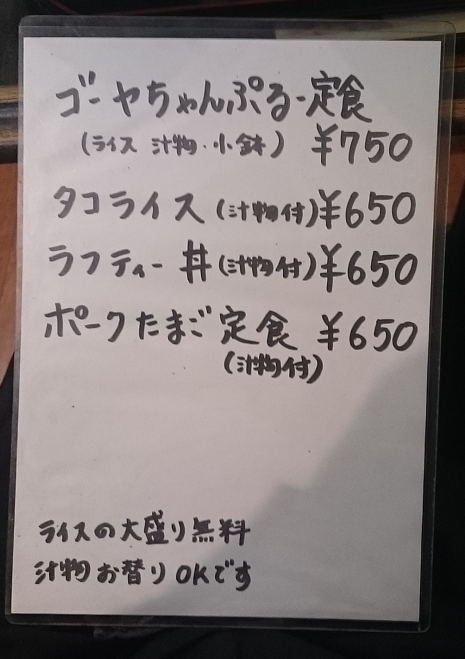 ゴーヤちゃんぷるー定食
(ライス 汁物・小鉢) ¥750
タコライス(汁物付)¥650
ラフティー丼(汁物付)¥650
ポークたまご定食 ¥650
(汁物付)
ライスの大盛り無料
汁物お替りOKです